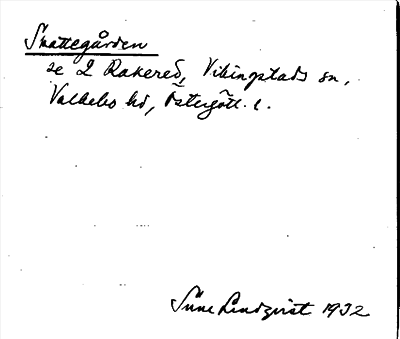 Snattegården
se 2 Rakered, Vikingstads sn,
Valkebo hd, Östergötl. l.
Sune Lindqvist 1932